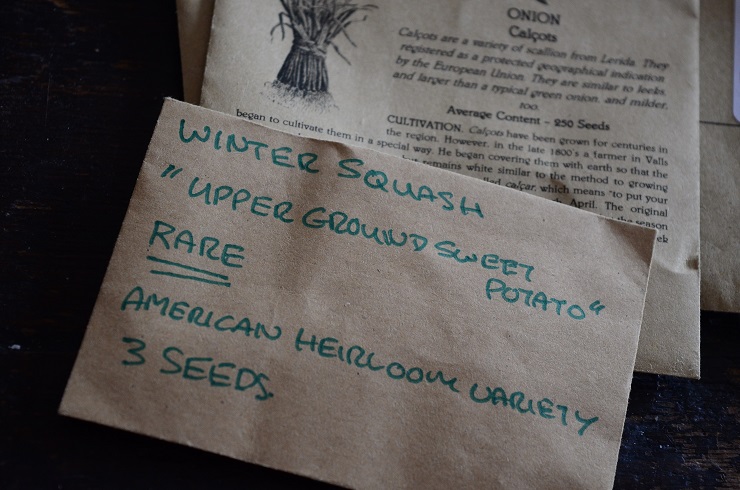 ONION
Calçots
Calçots are a variety of scallion from Lerida. They
registered as a protected geographical indication
by the European Union. They are similar to leeks
and larger than a typical green onion, and milder,
too.
Average Content - 250 Seeds
CULTIVATION. Calçots have been grown for centuries in
the region. However, in the late 1800's a farmer in Valls
began to cultivate them in a special way. He began covering them with earth so that the
remains white similar to the method to growing
calçar, which means "to put your
April. The original
season
WINTER SQUASH
"UPPER GROUND SWEET
POTATO"
RARE
AMERICAN HEIRLOOM VARIETY
3 SEEDS.